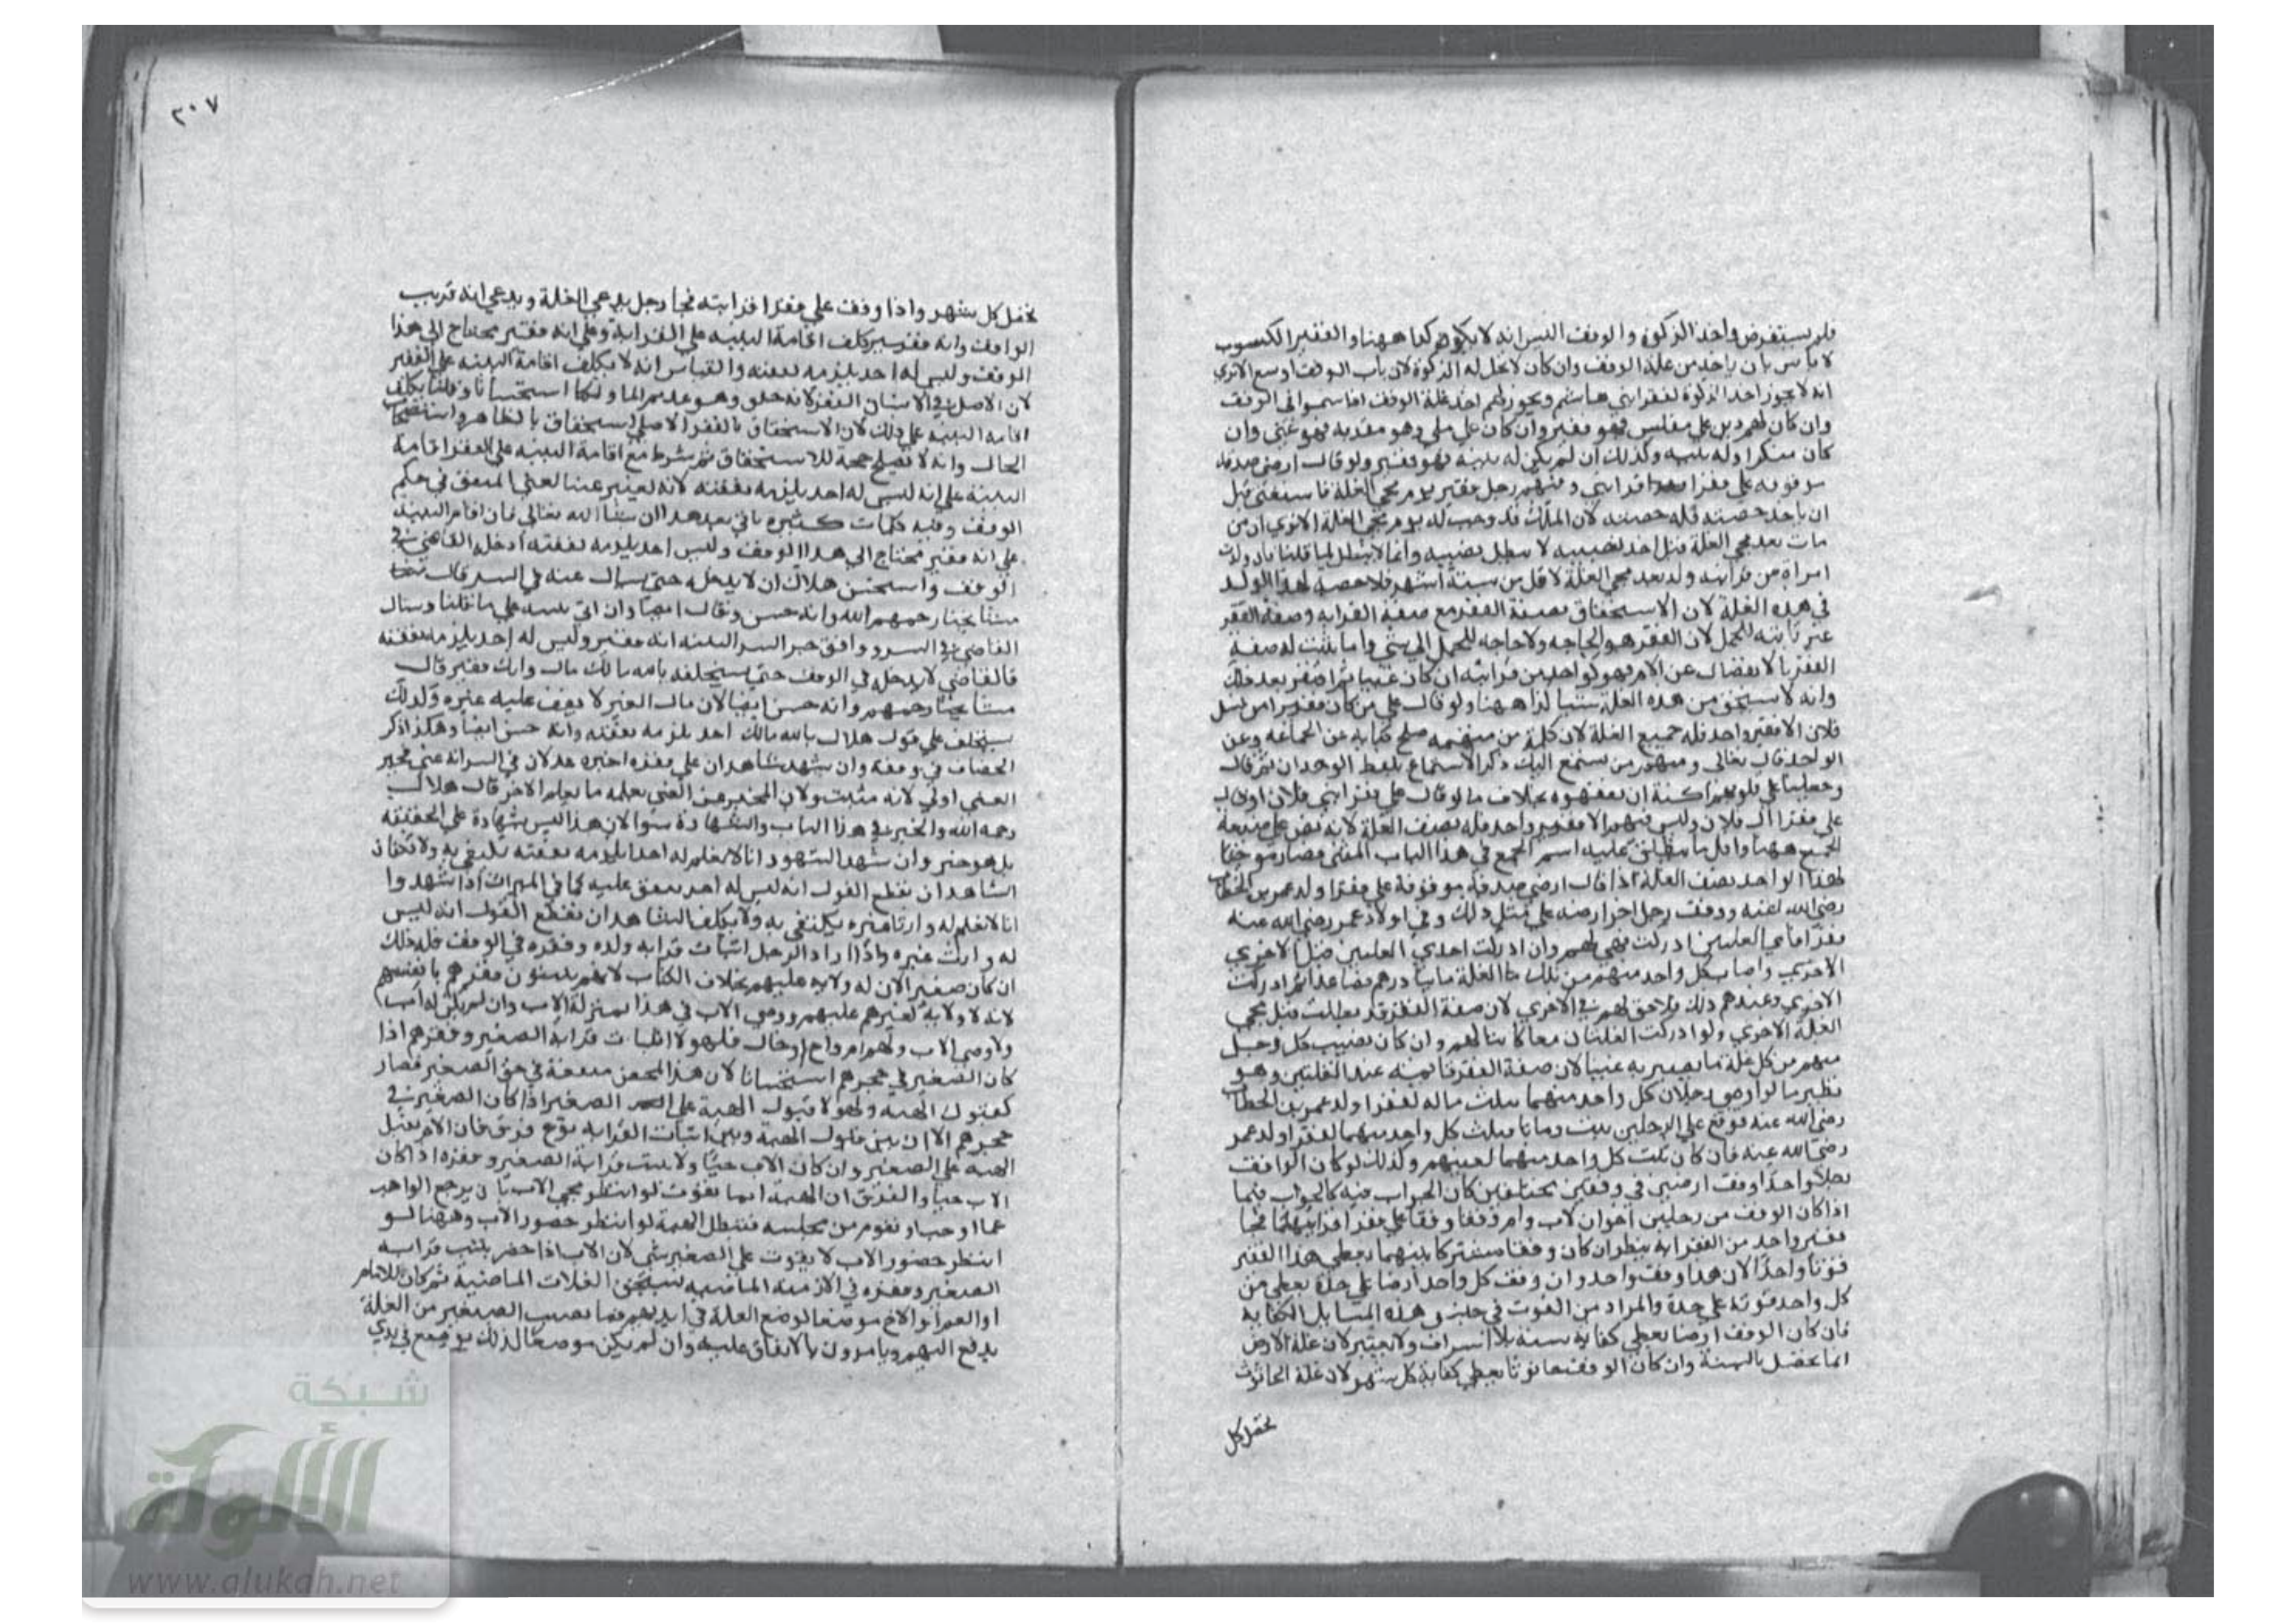 فلم يستقرض واخذ الزكوة والوقف اليس انه لا يكون كذا ههنا والفقير الكسوب
لا باس بان ياخذ من غلة الوقف وان كان لا تحل له الزكوة لان باب الوقف اوسع الا تري
انه لا يجوز اخذ الزكوة لفقرا بني هاشم ويجوز لهم اخذ غلة الوقف اذا سموا في الوقف
وان كان لهم دين علي مفلس فهو فقير وان كان علي ملي وهو مقر به فهو غني وان
كان منكرا وله بينه وكذلك ان لم يكن له بينه فهو فقير ولو قال ارضي صدقة
موقوفه علي فقرا قرابتي وفيهم رجل فقير يوم مجي الغلة فاستغني قبل
ان ياخذ حصته فله حصته لان الملك قد وجب له يوم مجي الغلة الا تري ان من
مات بعد مجي الغلة قبل اخذ نصيبه لا يبطل نصيبه وانما لا يبطل لما قلنا
امراة من قرابته ولد بعد مجي الغلة لاقل من ستة اشهر فلا حصه لهذا الولد
في هذه الغلة لان الاستحقاق بصفة الفقر مع صفة القرابه وصفة الفقر
غير ثابته للحمل لان الفقر هو الحاجه ولا حاجه للحمل الي شي وانما يثبت له صفة
الفقر بالانفصال عن الام فهو كواحد من قرابته ان كان غنيا ثم افتقر بعد ذلك
وانه لا يستحق من هذه الغلة شيا كذا ههنا ولو قال علي من كان فقيرا من نسل
فلان الا فقير واحد فله جميع الغلة لان كلمة من مبهمه صلح كنايه عن الجماعه وعن
الواحد قال تعالي ومنهم من يستمع اليك ذكر الاستماع بلفظ الوحدان ثم قال
وجعلنا علي قلوبهم اكنة ان يفقهوه بخلاف ما لو قال علي فقرا بني فلان او قال
علي فقرا ال فلان وليس فيهم الا فقير واحد فله نصف الغلة لانه نص علي صيغة
الجمع ههنا واقل ما ينطلق عليه اسم الجمع في هذا الباب المثني فصار موجبا
لهذا الواحد نصف الغلة اذا قال ارضي صدقة موقوفة علي فقرا ولد عمر بن الخطاب
رضي الله عنه ووقف رجل اخر ارضه علي مثل ذلك وفي اولاد عمر رضي الله عنه
فقرا فاي الغلتين ادركت فهي لهم وان ادركت احدي الغلتين قبل الاخري
واصاب كل واحد منهم من تلك الغلة مايتا درهم فصاعدا ثم ادركت
الاخري وعندهم ذلك فلا حق لهم في الاخري لان صفة الفقر قد بطلت قبل مجي
الغلة الاخري ولو ادركت الغلتان معا كانتا لهم وان كان نصيب كل رجل
منهم من كل غلة ما يصير به غنيا لان صفة الفقر قايمة عند الغلتين وهو
نظير ما لو اوصي رجلان كل واحد منهما بثلث ماله لفقرا ولد عمر بن الخطاب
رضي الله عنه فوقع علي الرجلين بيت وماتا فثلث كل واحد منهما لفقرا ولد عمر
رضي الله عنه فان كان ثلث كل واحد منهما لغنيهم وكذلك لو كان الواقف
رجلا واحدا وقف ارضين في وقفين مختلفين كان الجواب فيه كالجواب فيما
اذا كان الوقف من رجلين اخوان لاب وام وقفا وقفا علي فقرا قرابتهما فجا
فقير واحد من القرابه ينظر ان كان وقفا مشتركا بينهما يعطي هذا الفقير
قوتا واحدا لان هذا وقف واحد وان وقف كل واحد ارضا علي حدة يعطي من
كل واحد قوته علي حدة والمراد من القوت في جنس هذه المسايل الكفاية
فان كان الوقف ارضا يعطي كفاية سنه بلا اسراف ولا تقتير لان غلة الارض
انما تحصل بالسنة وان كان الوقف حانوتا يعطي كفاية كل شهر لان غلة الحانوت
تحصل كل
٢٠٧
تحصل كل شهر واذا وقف علي فقرا قرابته فجا رجل يدعي الغلة ويدعي انه قريب
الواقف وانه فقير يكلف اقامة البينه علي القرابة وعلي انه فقير محتاج الي هذا
الوقف وليس له احد يلزمه نفقته والقياس انه لا يكلف اقامة البينه علي الفقير
لان الاصل في الانسان الفقر لانه خلق وهو عديم المال ولكنا استحسانا وقلنا يكلف
اقامة البينه علي ذلك لان الاستحقاق بالفقر الاصلي استحقاق بالظاهر واستصحاب
الحال وانه لا يصلح حجة للاستحقاق ثم شرط مع اقامة البينه علي الفقر اقامة
البينة علي انه ليس له احد يلزمه نفقته لانه يعتبر عند الغني المنفق في حكم
الوقف وفيه كلمات كثيرة ياتي بعد هذا ان شا الله تعالي فان اقام البينه
علي انه فقير محتاج الي هذا الوقف وليس احد يلزمه نفقته ادخله القاضي في
الوقف واستحسن هلال ان لا يدخله حتي يسال عنه في السر قال
مشايخنا رحمهم الله وانه حسن وقال ايضا وان اتي ببينه علي ما قلنا وسال
القاضي في السر ووافق خبر السر البينه انه فقير وليس له احد يلزمه نفقته
فالقاضي لا يدخله في الوقف حتي يستحلفه بالله مالك مال وانك فقير قال
مشايخنا رحمهم وانه حسن ايضا لان مال الغير لا يقف عليه غيره وكذلك
يستحلف علي قول هلال بالله مالك احد يلزمه نفقته وانه حسن ايضا وهكذا ذكر
الخصاف في وقفه وان شهد شاهدان علي فقره اخبره عدلان في السر انه غني فخبر
الغني اولي لانه مثبت ولان المخبر عن الغني يعلم ما يعلم الاخر قال هلال
رحمه الله والخبر في هذا الباب والشهادة سوا لان هذا ليس بشهادة علي الحقيقة
بل هو خبر وان شهد الشهود انا لا نعلم له احدا يلزمه نفقته يكتفي به ولا يكلف
الشاهدان بقطع القول انه ليس له احد ينفق عليه كما في الميراث اذا شهدوا
انا لا نعلم له وارثا غيره يكتفي به ولا يكلف الشاهدان بقطع القول انه ليس
له وارث غيره واذا اراد الرجل اثبات قرابه ولده وفقره في الوقف فله ذلك
ان كان صغيرا لان له ولايه عليهم بخلاف الكبار لانهم يثبتون فقرهم بانفسهم
لانه لا ولاية لغيرهم عليهم ووصي الاب في هذا بمنزلة الاب وان لم يكن له اب
ولا وصي الاب ولهم ام او اخ او خال فلهولا اثبات قرابة الصغير وفقرهم اذا
كان الصغير في حجرهم استحسانا لان هذا تمحض منفعة في حق الصغير فصار
كقبول الهبه ولهولا قبول الهبة علي الصغير اذا كان الصغير في
حجرهم الا ان بين قبول الهبة وبين اثبات القرابه نوع فرق فان الام تقبل
الهبه علي الصغير وان كان الاب حيا ولا يثبت قرابة الصغير وفقره اذا كان
الاب حيا والفرق ان الهبة انما تفوت لو انتظر مجي الاب بان يرجع الواهب
عما اوجب او تقوم من مجلسه فتبطل الهبة لو انتظر حضور الاب وههنا لو
انتظر حضور الاب لا يفوت علي الصغير شي لان الاب اذا حضر يثبت قرابه
الصغير وفقره في الازمنة الماضيه يستحق الغلات الماضية ثم كان للام
او العم او الاخ موضعا لوضع الغلة في ايديهم فما نصيب الصغير من الغلة
يدفع اليهم ويامرون بالانفاق عليه وان لم يكن موضعا لذلك يوضع في يدي
شبكة
الألوكة
www.alukah.net